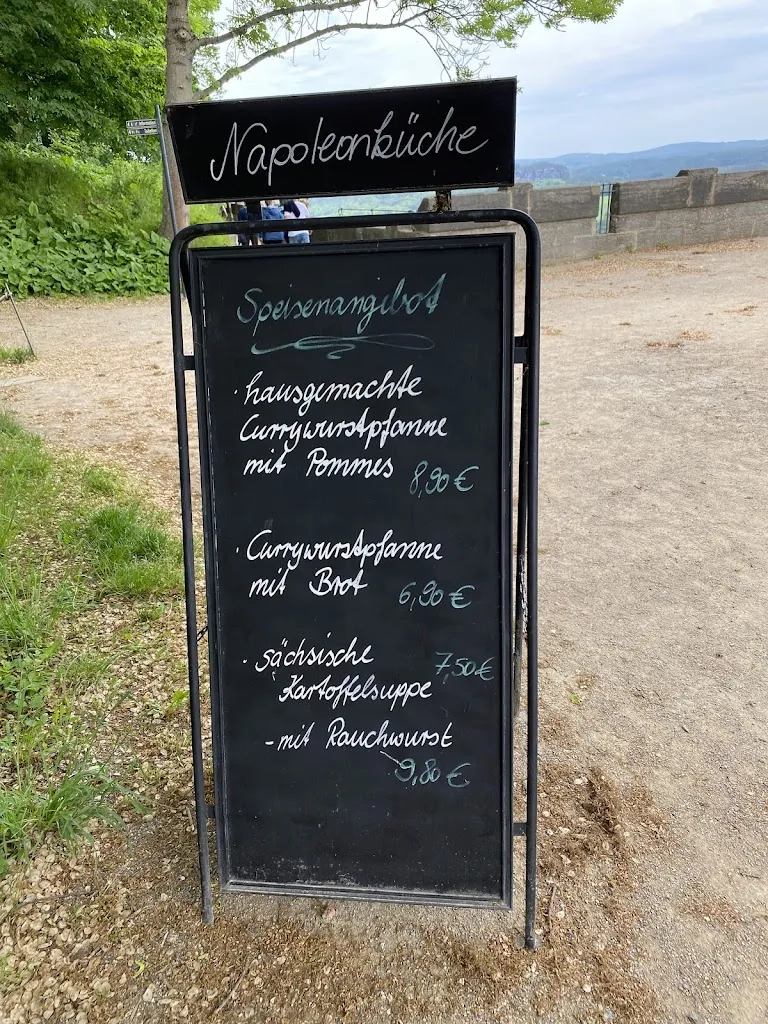 Napoleonküche
Speisenangebot
· hausgemachte
Currywurstpfanne
mit Pommes 8,90 €
· Currywurstpfanne
mit Brot 6,90 €
· sächsische 7,50 €
Kartoffelsuppe
- mit Rauchwurst
9,80 €